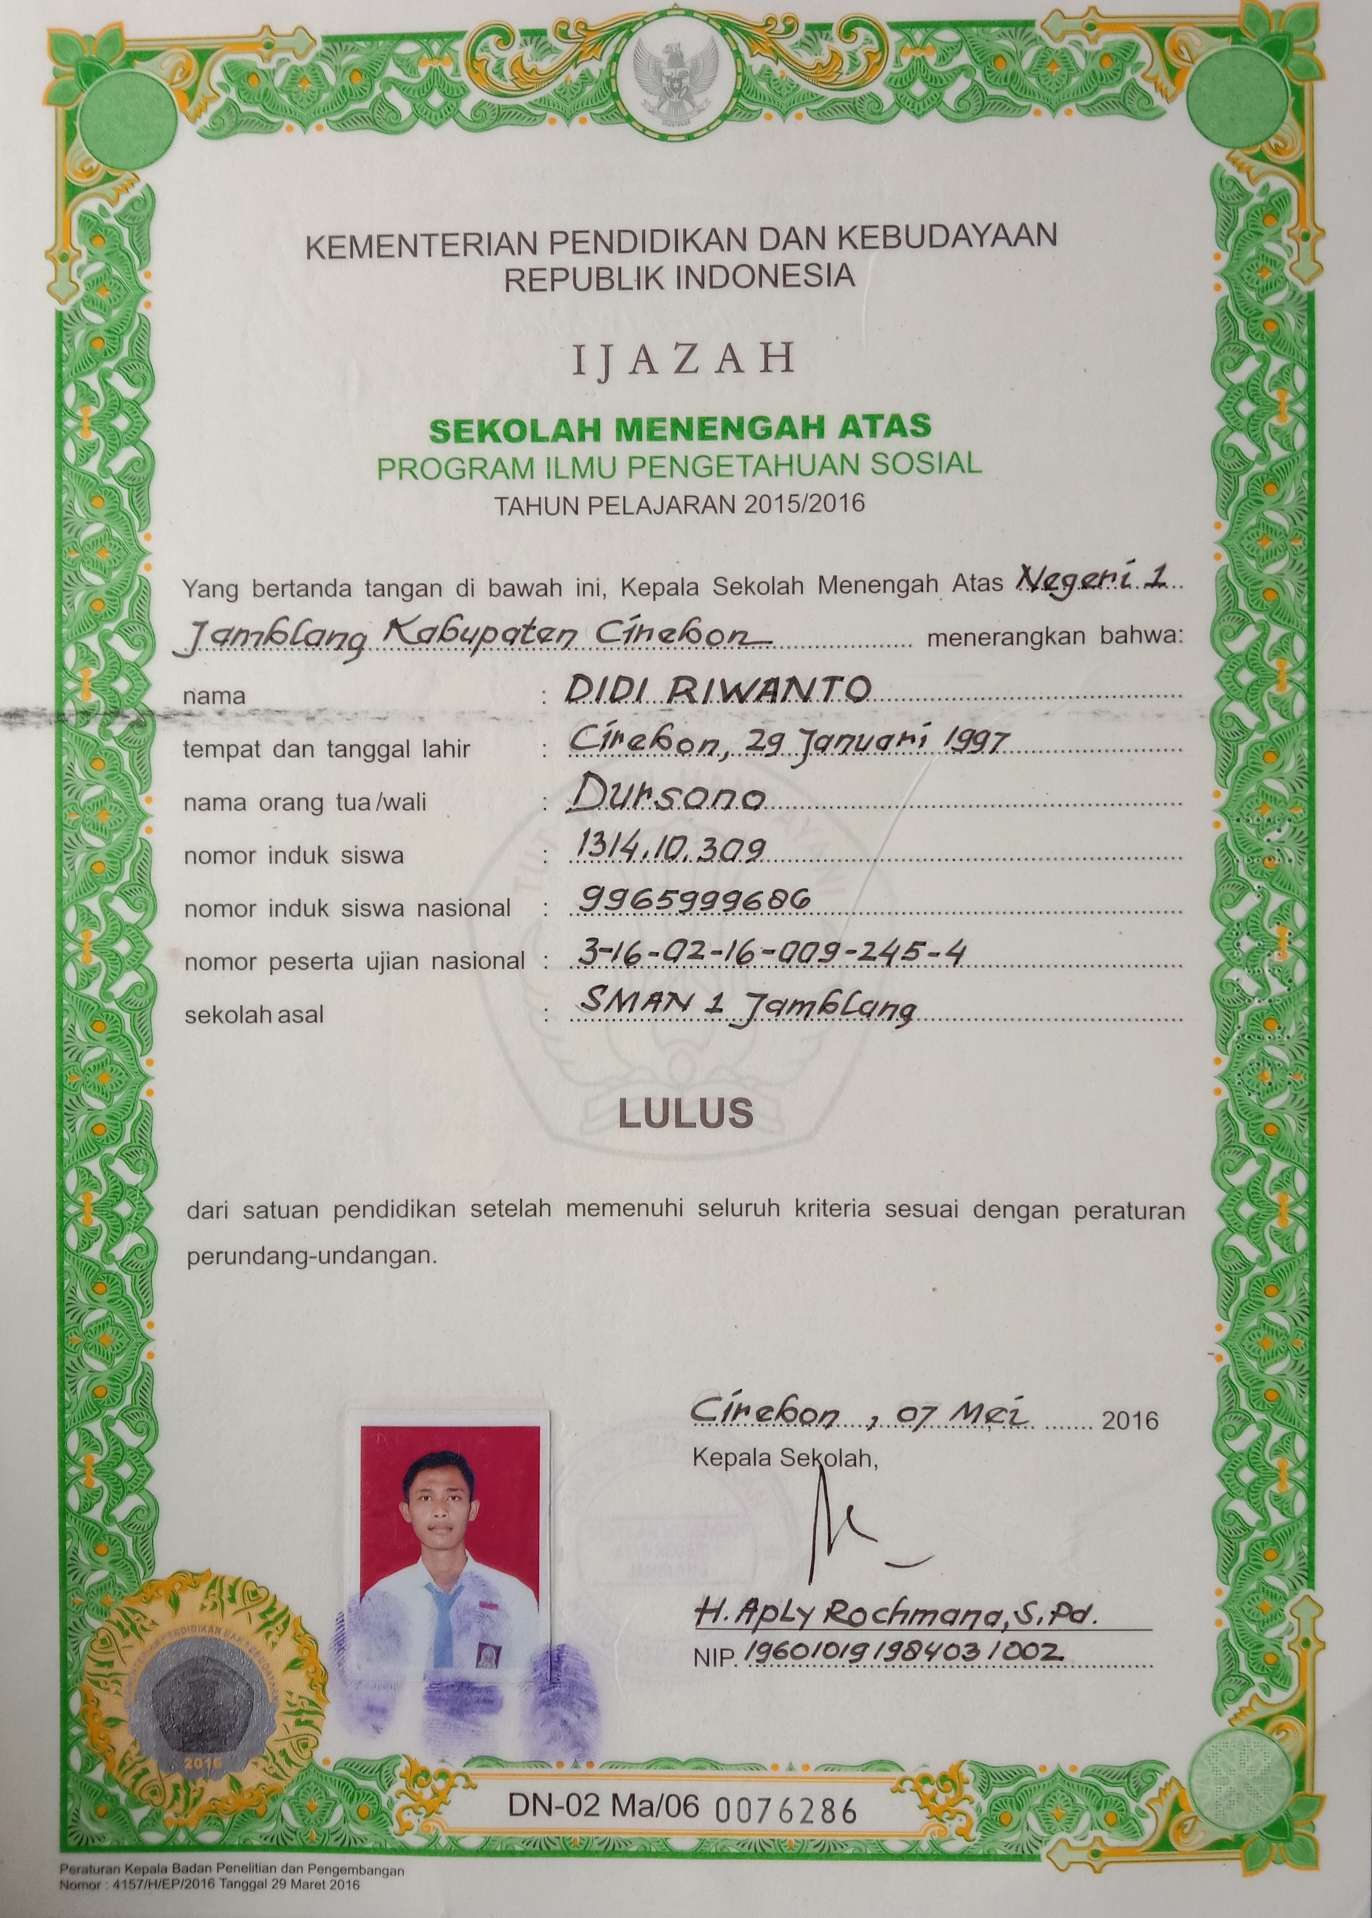 KEMENTERIAN PENDIDIKAN DAN KEBUDAYAAN
REPUBLIK INDONESIA
IJAZAH
SEKOLAH MENENGAH ATAS
PROGRAM ILMU PENGETAHUAN SOSIAL
TAHUN PELAJARAN 2015/2016
Yang bertanda tangan di bawah ini, Kepala Sekolah Menengah Atas Negeri 1
Jamblang Kabupaten Cirebon menerangkan bahwa:
nama : DIDI RIWANTO
tempat dan tanggal lahir : Cirebon, 29 Januari 1997
nama orang tua/wali : Dursono
nomor induk siswa : 1314.10.309
nomor induk siswa nasional : 9965999686
nomor peserta ujian nasional : 3-16-02-16-009-245-4
sekolah asal : SMAN 1 Jamblang
LULUS
dari satuan pendidikan setelah memenuhi seluruh kriteria sesuai dengan peraturan
perundang-undangan.
Cirebon, 07 Mei 2016
Kepala Sekolah,
H. Aply Rochmana, S.Pd.
NIP. 196010191984031002
2016
DN-02 Ma/06 0076286
Peraturan Kepala Badan Penelitian dan Pengembangan
Nomor : 4157/H/EP/2016 Tanggal 29 Maret 2016